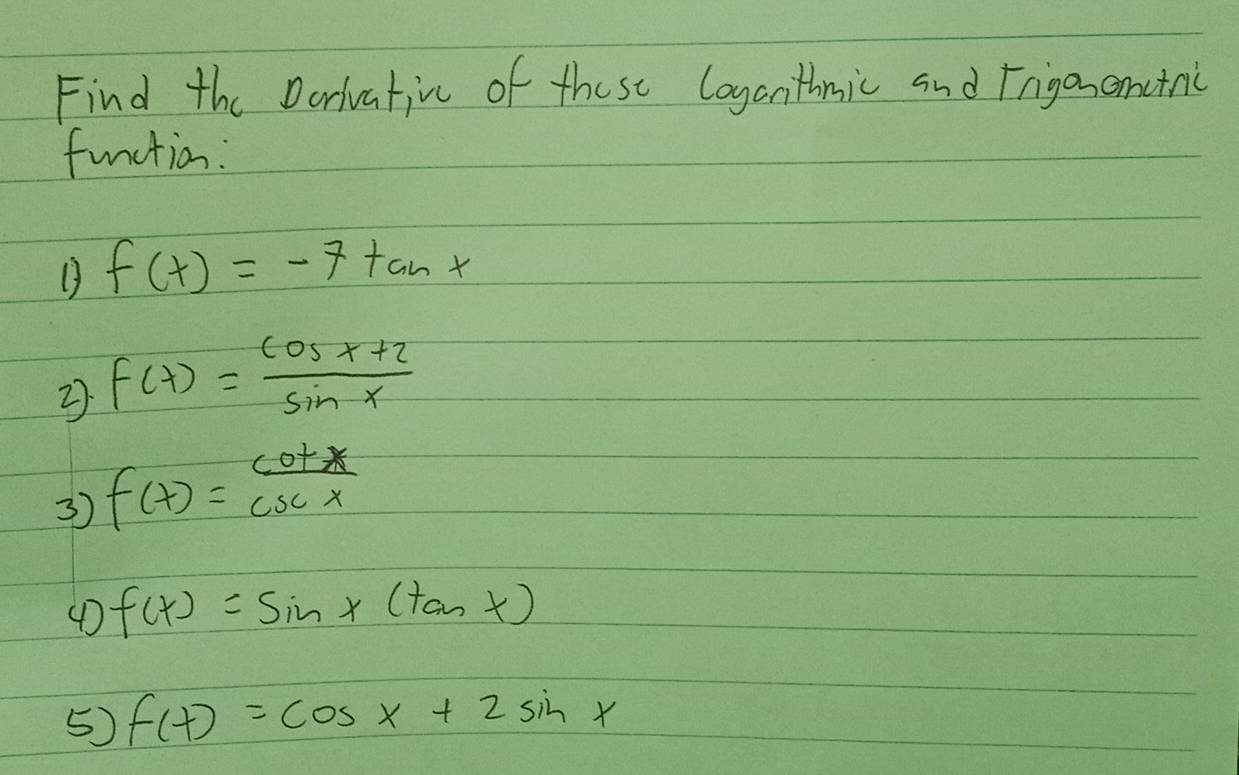 Find the Derivative of these Logarithmic and Trigonometric
function:
1) f(x) = -7 tan x
2). f(x) = cos x +2 / sin x
3) f(x) = cot x / csc x
4) f(x) = Sin x (tan x)
5) f(x) = cos x + 2 sin x